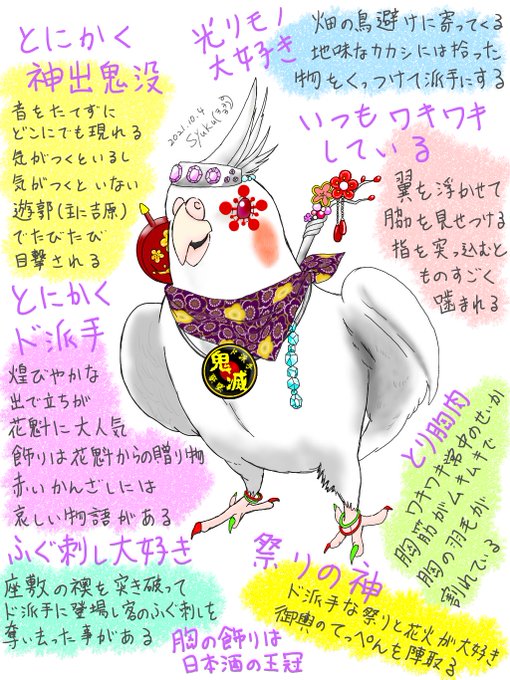 とにかく
神出鬼没
音をたてずに
どこにでも現れる
気がつくといるし
気がつくといない
遊郭(主に吉原)
でたびたび
目撃される
光リモノ
大好き
畑の鳥避けに寄ってくる
地味なカカシには拾った
物をくっつけて派手にする
2021.10.4
Syuku(ヨヨヨ)
いつもワキワキ
している
翼を浮かせて
脇を見せつける
指を突っ込むと
ものすごく
噛まれる
とにかく
ド派手
煌びやかな
出で立ちが
花魁に大人気
飾りは花魁からの贈り物
赤いかんざしには
哀しい物語がある
鬼滅
とり胸肉
ワキワキ常中のせいか
胸筋がムキムキで
胸の羽毛が
割れている
ふぐ刺し大好き
座敷の襖を突き破って
ド派手に登場し客のふぐ刺しを
奪い去った事がある
祭りの神
ド派手な祭りと花火が大好き
御輿のてっぺんを陣取る
胸の飾りは
日本酒の王冠